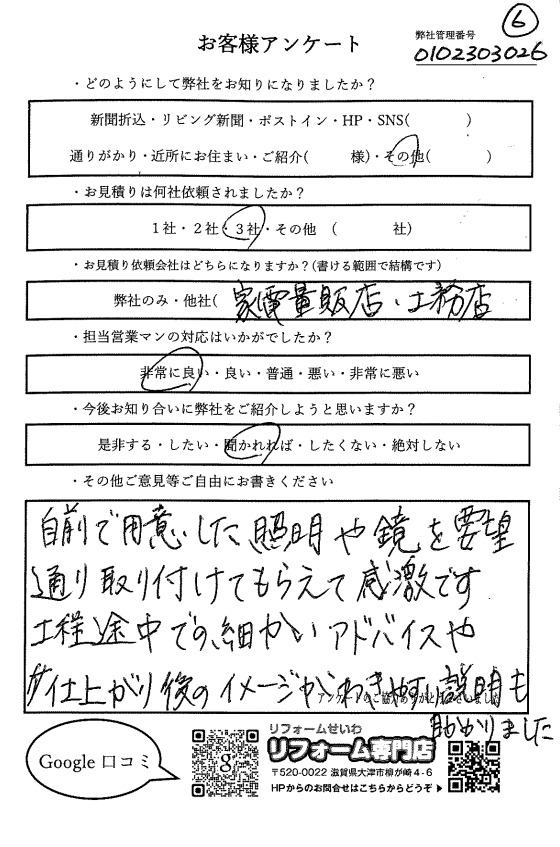 ⑥
お客様アンケート
弊社管理番号
0102303026
・どのようにして弊社をお知りになりましたか？
新聞折込・リビング新聞・ポストイン・HP・SNS( )
通りがかり・近所にお住まい・ご紹介( 様)・その他( )
・お見積りは何社依頼されましたか？
1社・2社・3社・その他 ( 社)
・お見積り依頼会社はどちらになりますか？(書ける範囲で結構です)
弊社のみ・他社( 家電量販店・工務店
・担当営業マンの対応はいかがでしたか？
非常に良い・良い・普通・悪い・非常に悪い
・今後お知り合いに弊社をご紹介しようと思いますか？
是非する・したい・聞かれれば・したくない・絶対しない
・その他ご意見等ご自由にお書きください
自前で用意した照明や鏡を要望
通り取り付けてもらえて感激です
工程途中での細かいアドバイスや
仕上がり後のイメージがわきやすい説明も
助かりました
アンケートのご協力ありがとうございました
Google 口コミ
g
リフォームせいわ
リフォーム専門店
〒520-0022 滋賀県大津市柳が崎4-6
HPからのお問合せはこちらからどうぞ▶